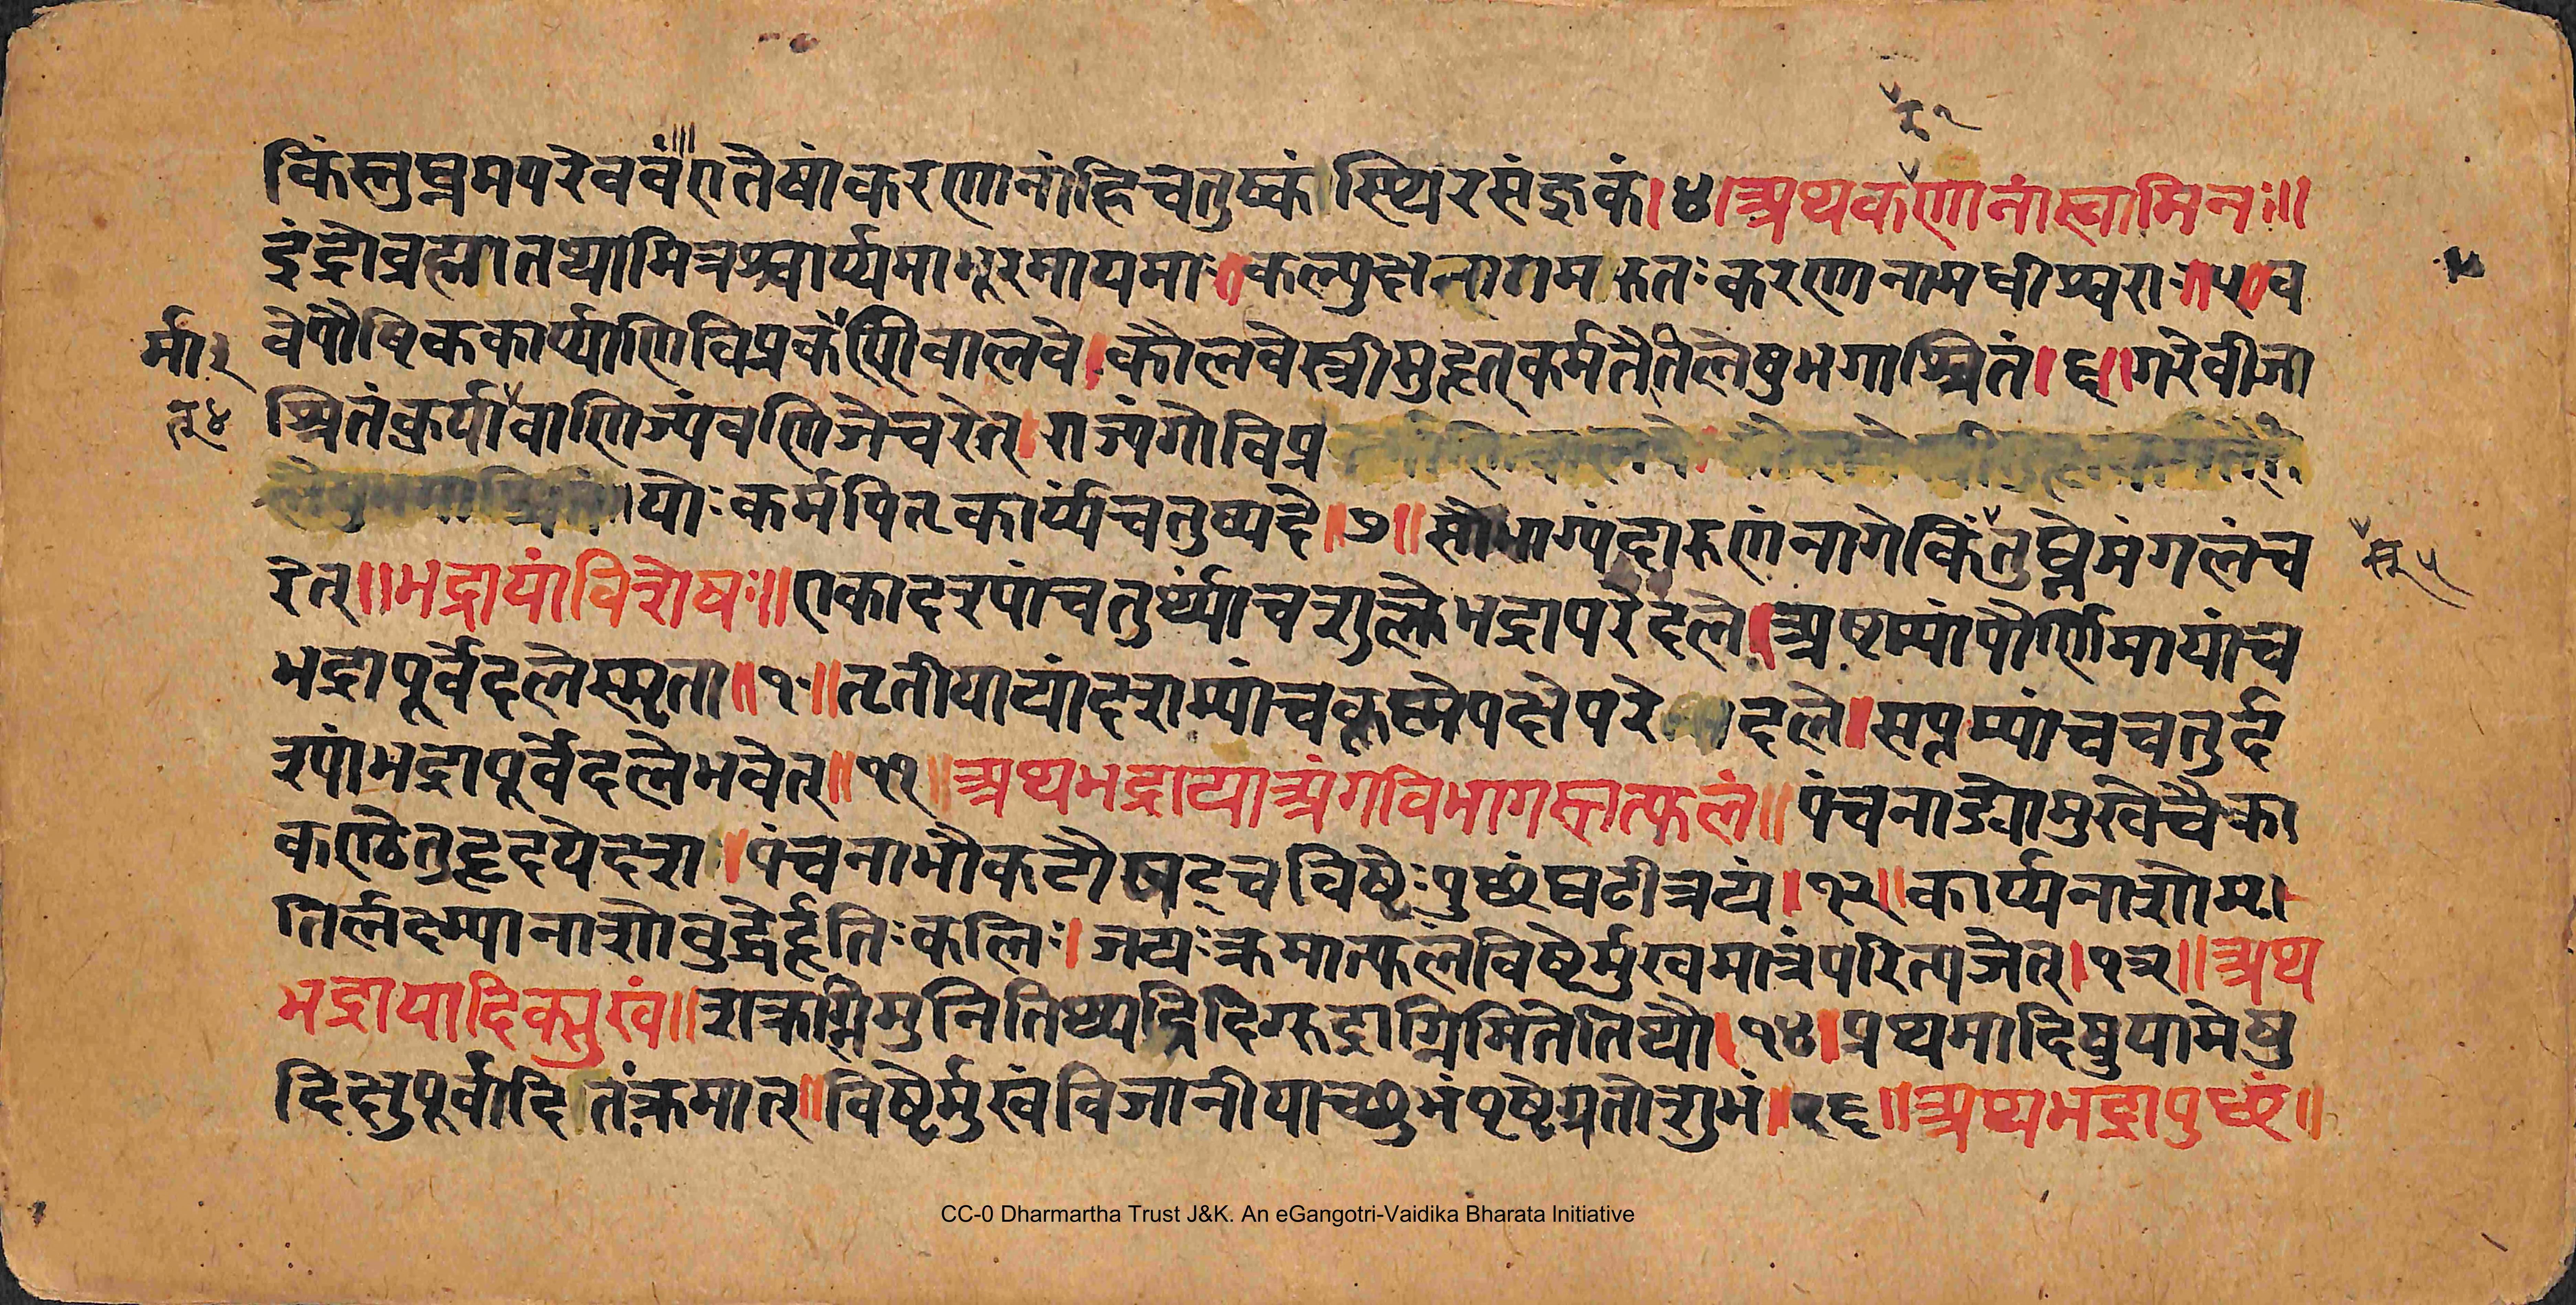 र २
किंस्तुघ्नमपरेववंएतेषांकरणानांहिचतुष्कंस्थिरसंज्ञकं।४।अथकणानांस्वामिनः॥
इंद्रोब्रह्मातथामित्रश्चार्य्यमाभूरमायमाः।कल्पुक्षानागमरुतःकरणानामधीश्वराः॥५॥व
वेपौष्टिककार्य्याणिविप्रकंर्म्मणिवालवे।कौलवेस्त्रीमुहृत्कर्मतैतिलेषुभगाश्रितं।६॥गरेवीजा
र्मा २
श्रितंकुर्यावाणिज्यंवणिजेचरेत्।राज्यंगोविप्र
त् ४
योःकर्मपितृकार्य्यंचतुष्पदे॥७॥सौभाग्यंदारुणंनागेकिंतुघ्नेमंगलंच
स् ५
रेत्॥भद्रायांविशेषः॥एकादश्यांचतुर्थ्यांचशुक्लेभद्रापरेदले।अष्टम्यांपौर्णिमायांच
भद्रापूर्वेदलेस्मृता॥१०॥तृतीयायांदशम्यांचकृष्णेपक्षेपरेदले।सप्तम्यांचचतुर्द
श्यांभद्रापूर्वेदलेभवेत्॥११॥अथभद्रायाअंगविभागस्तत्फलं॥पंचनाड्योमुखेचैका
कण्ठेतुहृदयेदश।पंचनाभौकटौषट्चविष्टेःपुछंघटीत्रयं।१२॥कार्य्यनाशोमृ
तिर्लक्ष्म्यानाशोवुद्धेर्हृतिःकलिः।जयःक्रमात्फलंविष्टेर्मुखमात्रंपरित्यजेत्।१३॥अथ
भद्रायादिक्मुखं॥शक्राग्निमुनितिथ्यद्रिदिग्रुद्राग्निमितेतिथौ।१४।प्रथमादिषुयामेषु
दिक्षुपूर्वादितंक्रमात्॥विष्टेर्मुखंविजानीयाच्छुभंपृष्टेग्रतोशुभं॥१६॥अथभद्रापुछं॥
CC-0 Dharmartha Trust J&K. An eGangotri-Vaidika Bharata Initiative